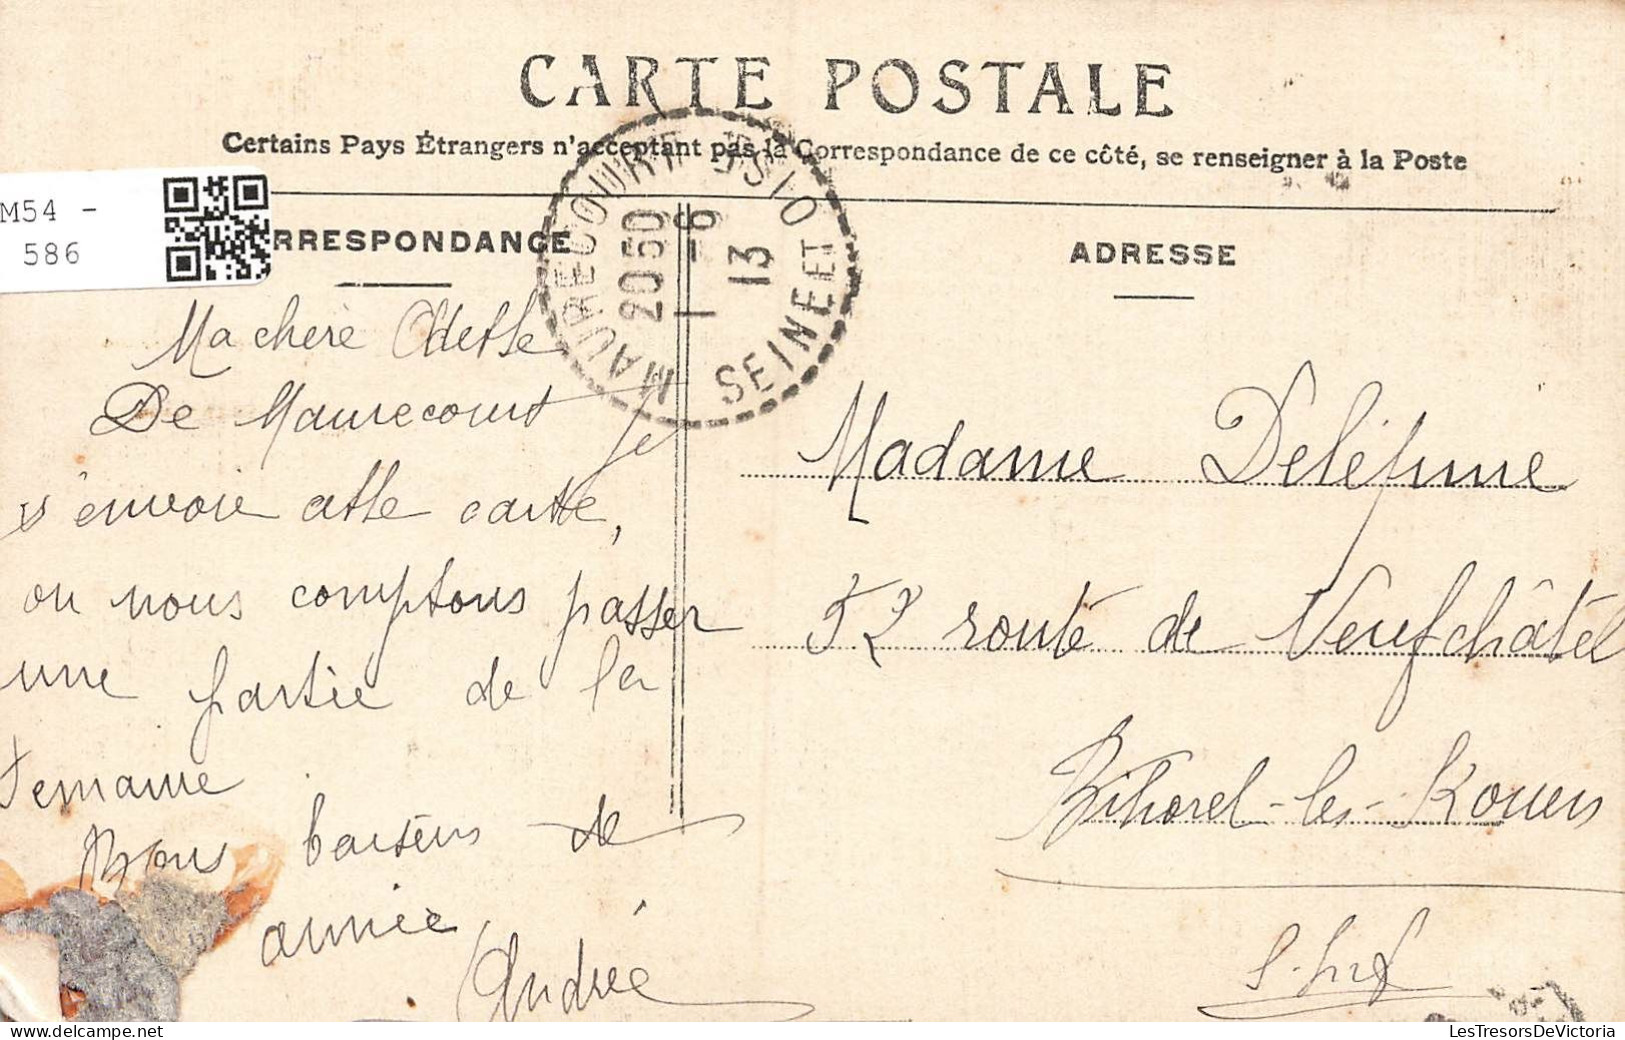 CARTE POSTALE
Certains Pays Étrangers n'acceptant pas la Correspondance de ce côté, se renseigner à la Poste
M54 -
586
RRESPONDANCE
ADRESSE
MAURECOURT
SEINE ET OISE
20 50
1 - 6
13
Ma chère Odette
De Maurecourt je
t'envoie cette carte,
ou nous comptons passer
une partie de la
semaine
Bons baisers de
amie
Andrée
Madame
52 route de Neufchâtel
Bihorel-les-Rouen
S. Inf
LesTresorsDeVictoria
www.delcampe.net